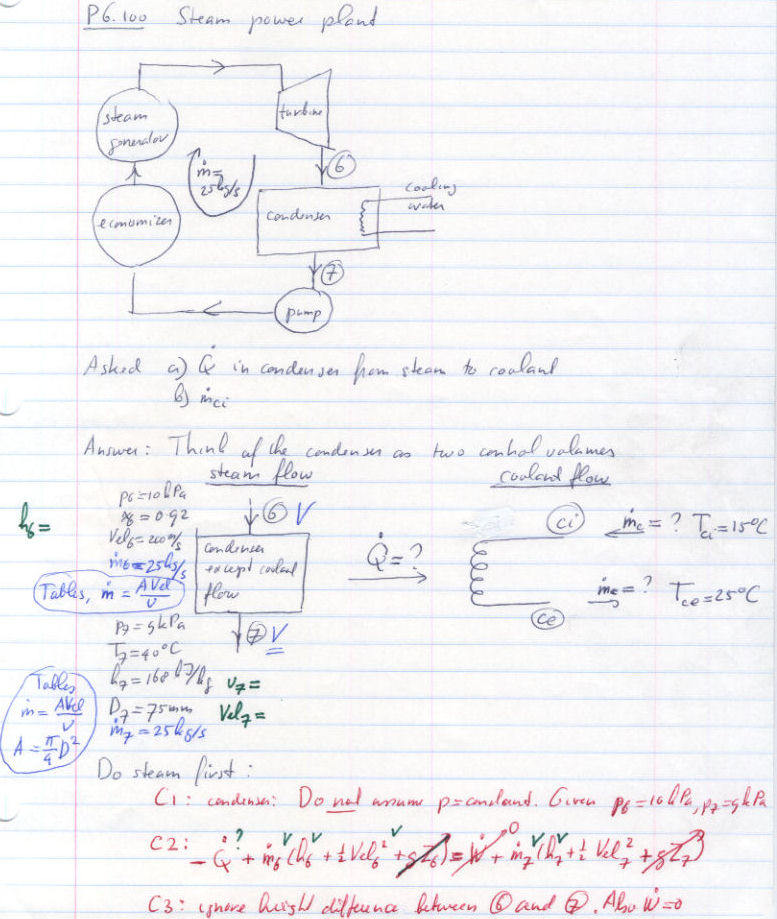 P6.100 Steam power plant
steam generator
turbine
ṁ= 25kg/s
6
cooling water
economizer
condenser
7
pump
Asked a) Q̇ in condenser from steam to coolant
b) ṁci
Answer: Think of the condenser as two control volumes
steam flow
coolant flow
h6=
p6=10kPa
x6=0.92
Vel6=200m/s
ṁ6=25kg/s
Tables, ṁ = AVel/v
6 V
condenser except coolant flow
7 V
Q̇=?
ci
ṁc=? Tci=15°C
ṁc=? Tce=25°C
ce
p7=9kPa
T7=40°C
h7=168 kJ/kg v7=
D7=75mm Vel7=
ṁ7=25kg/s
Tables
ṁ= AVel/v
A=π/4 D²
Do steam first:
C1: condenser: Do not assume p=constant. Given p6=10kPa, p7=9kPa
C2: -Q̇? + ṁ6(h6 + ½Vel6² + gZ6) = Ẇ 0 + ṁ7(h7 + ½Vel7² + gZ7)
C3: ignore height difference between 6 and 7. Also Ẇ=0